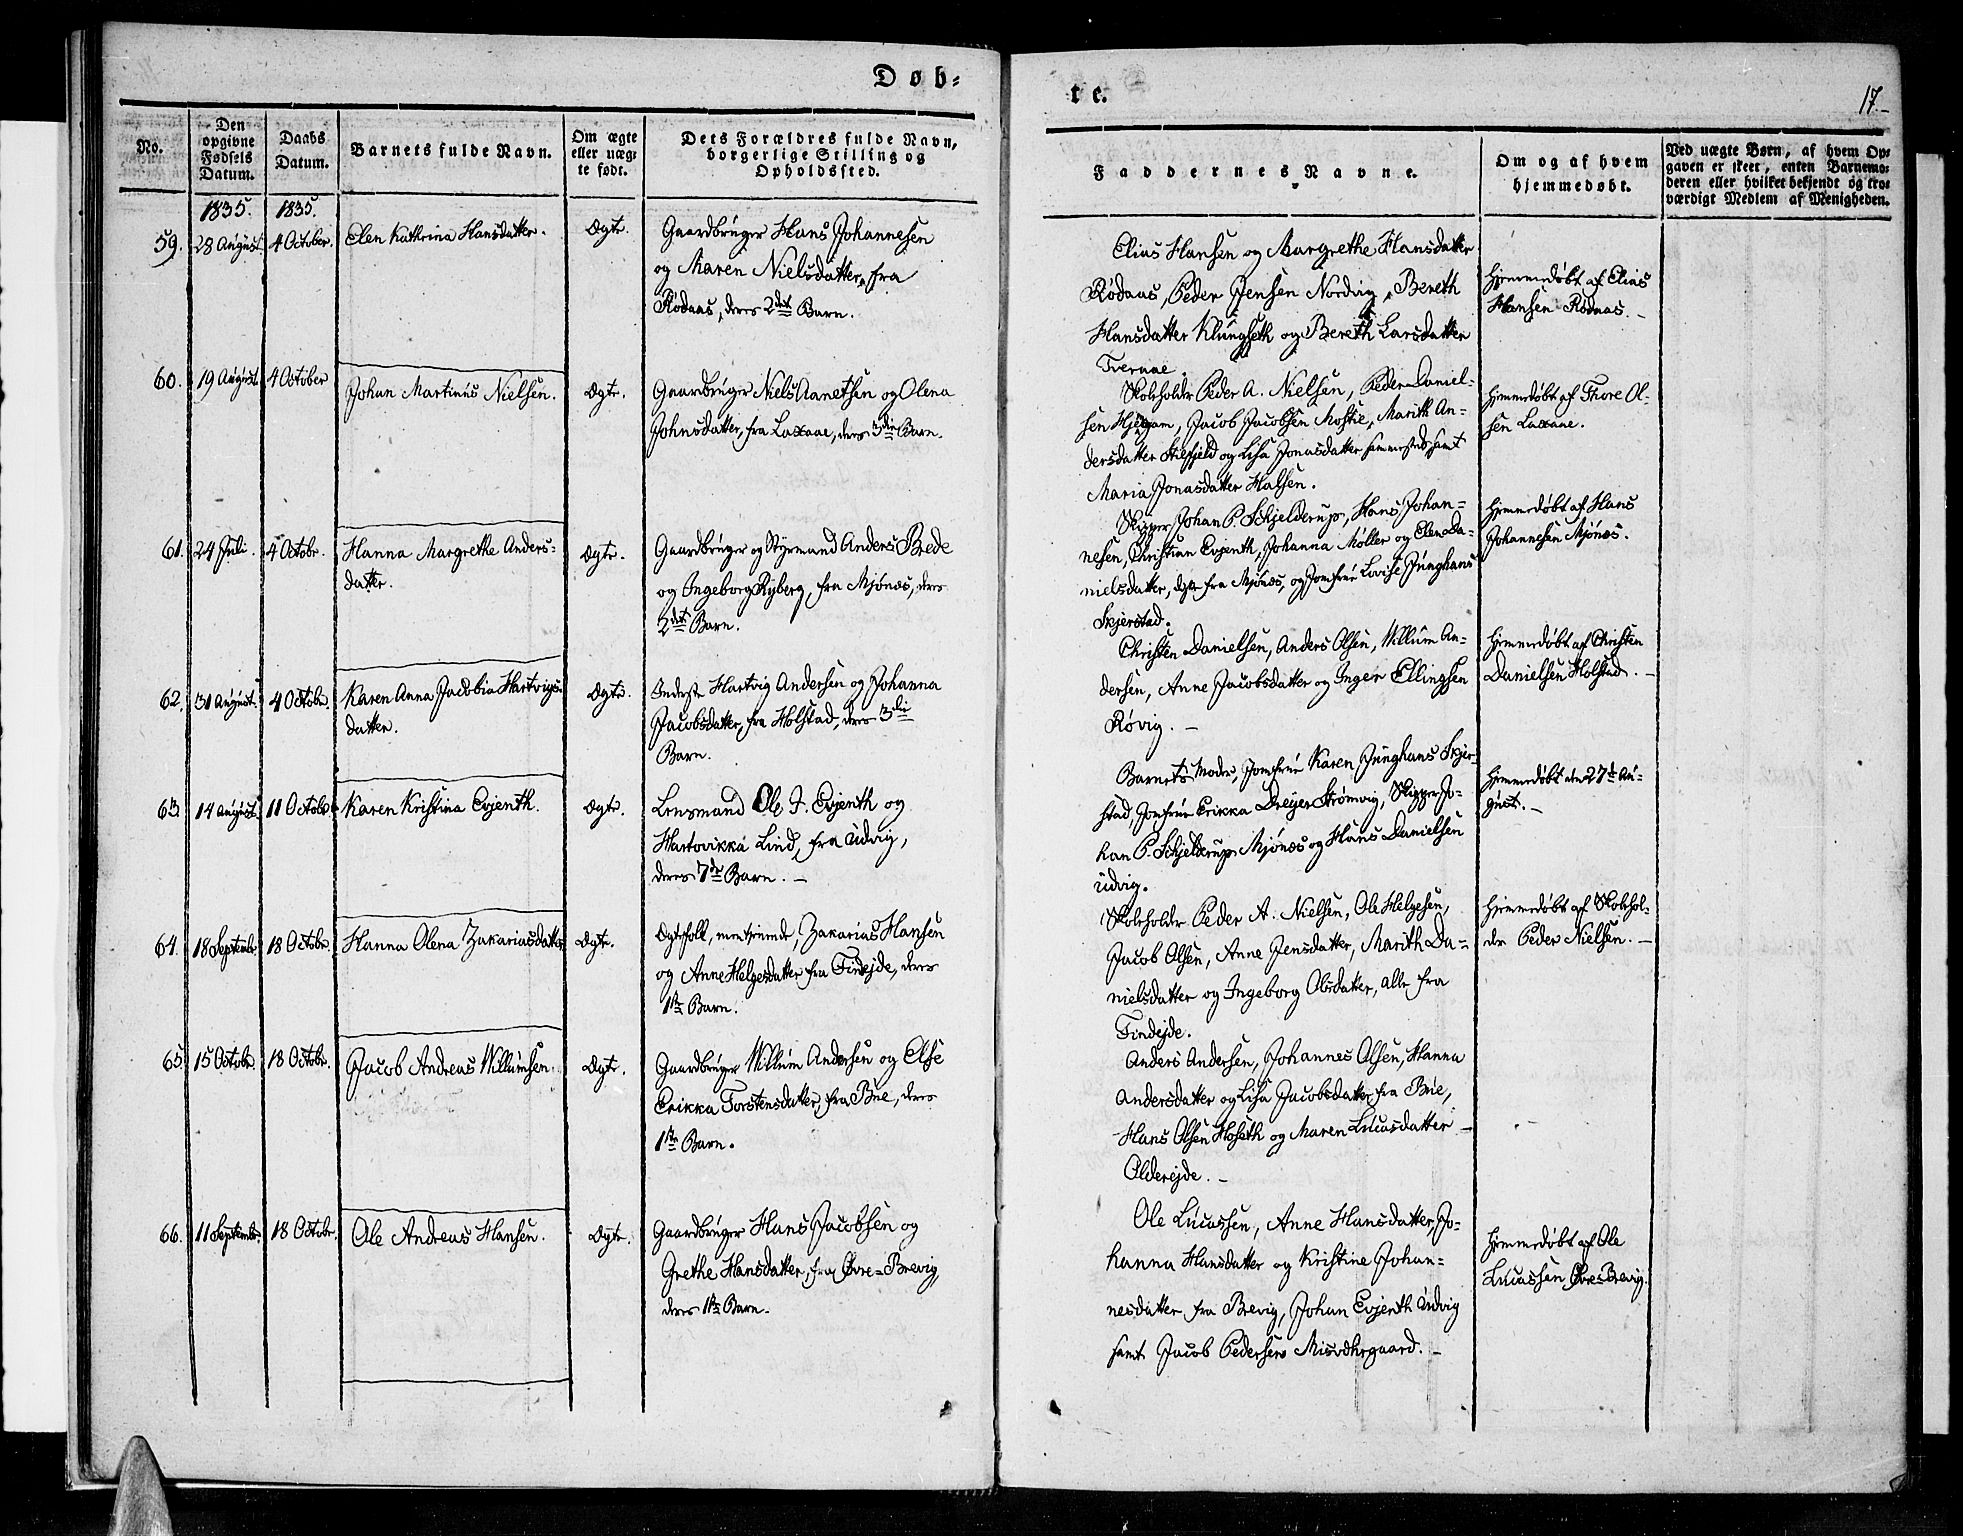 Døb-
No.
Den
opgivne
Fødsels
Datum.
Daabs
Datum.
Barnets fulde Navn.
Om ægte
eller uæg-
te født.
Dets Forældres fulde Navn,
borgerlige Stilling og
Opholdssted.
1835. 1835.
59. 28 August. 4 October. Elen Kathrina Hansdatter. Ægte. Gaardbruger Hans Johannesen
og Maren Nielsdatter, fra
Rødaas, deres 2det Barn.
60. 19 August. 4 October Johan Martinus Nielsen. Ægte. Gaardbruger Niels Aanetsen og Olena
Johnsdatter, fra Laxaae, deres 3die Barn.
61. 24 Juli. 4 Octobr. Hanna Margrethe Anders-
datter. Ægte. Gaardbruger og Styrmand Anders Brede
og Ingeborg Ryberg, fra Mjønæs, deres
2det Barn.
62. 31 August. 4 Octobr. Karen Anna Jacobia Hartvigs-
datter. Ægte. Inderste Hartvig Andersen og Johanna
Jacobsdatter, fra Holstad, deres 3die
Barn.
63. 14 August. 11 Octobr. Karen Kristina Evjenth. Ægte. Lensmand Ole J. Evjenth og
Hartovikka Lind, fra Udvig,
deres 7de Barn. –
64. 18 Septembr. 18 Octobr. Hanna Olena Zakariasdatter Ægte. Ægtefolk, Zakarias Hansen
og Anne Helgesdatter fra Findejde, deres
1ste Barn.
65. 15 Octobr. 18 Octobr. Jacob Andreas Willumsen. Ægte. Gaardbruger Willum Andersen og Else
Erikka Torstensdatter, fra Bue, deres
1ste Barn.
66. 11 Septembr. 18 Octobr. Ole Andreas Hansen. Ægte. Gaardbruger Hans Jacobsen og
Grethe Hansdatter, fra Øvre-Brevig,
deres 1ste Barn.
te.
17.
Faddernes Navne.
Om og af hvem
hjemmedøbt.
Ved uægte Børn, af hvem Op-
gaven er skeet, enten Barnemo-
deren eller hvilket bekjendt og tro-
værdigt Medlem af Menigheden.
Elias Hansen og Margrethe Hansdatter
Rødaas, Peder Jensen Nordvig, Bereth
Hansdatter Klungseth og Bereth Larsdatter
Tveraae.
Hjemmedøbt af Elias
Hansen Rødaas. –
Skoleholder Peder A. Nielsen, Peder Daniel-
sen Jacob Jacobsen Mostie, Marith An-
dersdatter Stilfjeld og Lisa Jonasdatter sammesteds samt
Maria Jonasdatter Halsen.
Hjemmedøbt af Thore Ol-
sen Laxaae.
Skipper Johan P. Schjelderup, Hans Johan-
nesen, Christian Evjenth, Johanna Møller og Elen Da-
nielsdatter, fra Mjønæs, og Jomfrue Lovise Junghans
Skjerstad.
Hjemmedøbt af Hans
Johannesen Mjønæs.
Christen Danielsen, Anders Olsen, Willum An-
dersen, Anne Jacobsdatter og Inger Ellingsen
Røvig. –
Hjemmedøbt af Christen
Danielsen Holstad. –
Barnets Moder, Jomfrue Karen Junghans Skjer-
stad, Jomfrue Erikka Dreyer Strømvig, Skipper Jo-
han P. Schjelderup Mjønæs og Hans Danielsen
Udvig.
Hjemmedøbt den 27de Au-
gust. –
Skoleholder Peder A. Nielsen, Ole Helgesen,
Jacob Olsen, Anne Jensdatter, Marith Da-
nielsdatter og Ingeborg Olsdatter, alle fra
Findejde.
Hjemmedøbt af Skolehol-
der Peder Nielsen. –
Anders Andersen, Johannes Olsen, Hanna
Andersdatter og Lisa Jacobsdatter fra Bue,
Hans Olsen Hoseth og Maren Lucasdatter
Olderejde. –
Ole Lucassen, Anne Hansdatter, Jo-
hanna Hansdatter og Kristine Johan-
nesdatter fra Brevig, Johan Evjenth Udvig
samt Jacob Pedersen Misværgaard. –
Hjemmedøbt af Ole
Lucassen Øvre-Brevig.